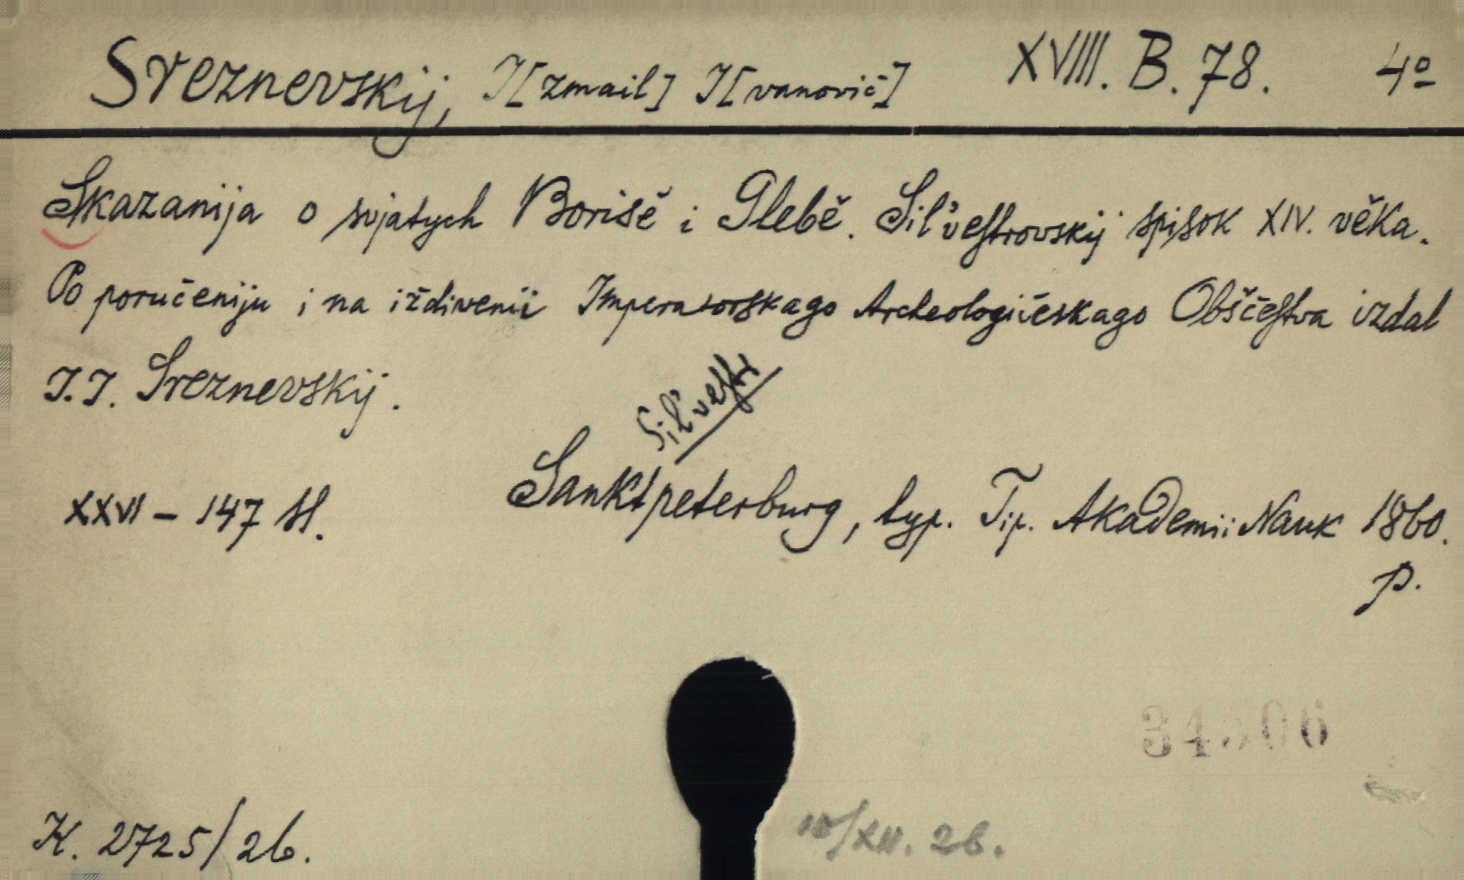 Sreznevskij, I[zmail] I[vanovič] XVIII. B. 78. 4º
Skazanija o svjatych Borisě i Glebě. Sil'vestrovskij spisok XIV. věka.
Po poručeniju i na iždivenii Imperatorskago Archeologičeskago Obščestva izdal
I. I. Sreznevskij.
Sil'vestr
XXVI – 147 SS. Sanktpeterburg, typ. Tip. Akademii Nauk 1860.
p.
K. 2725/26. 10/XII. 26.